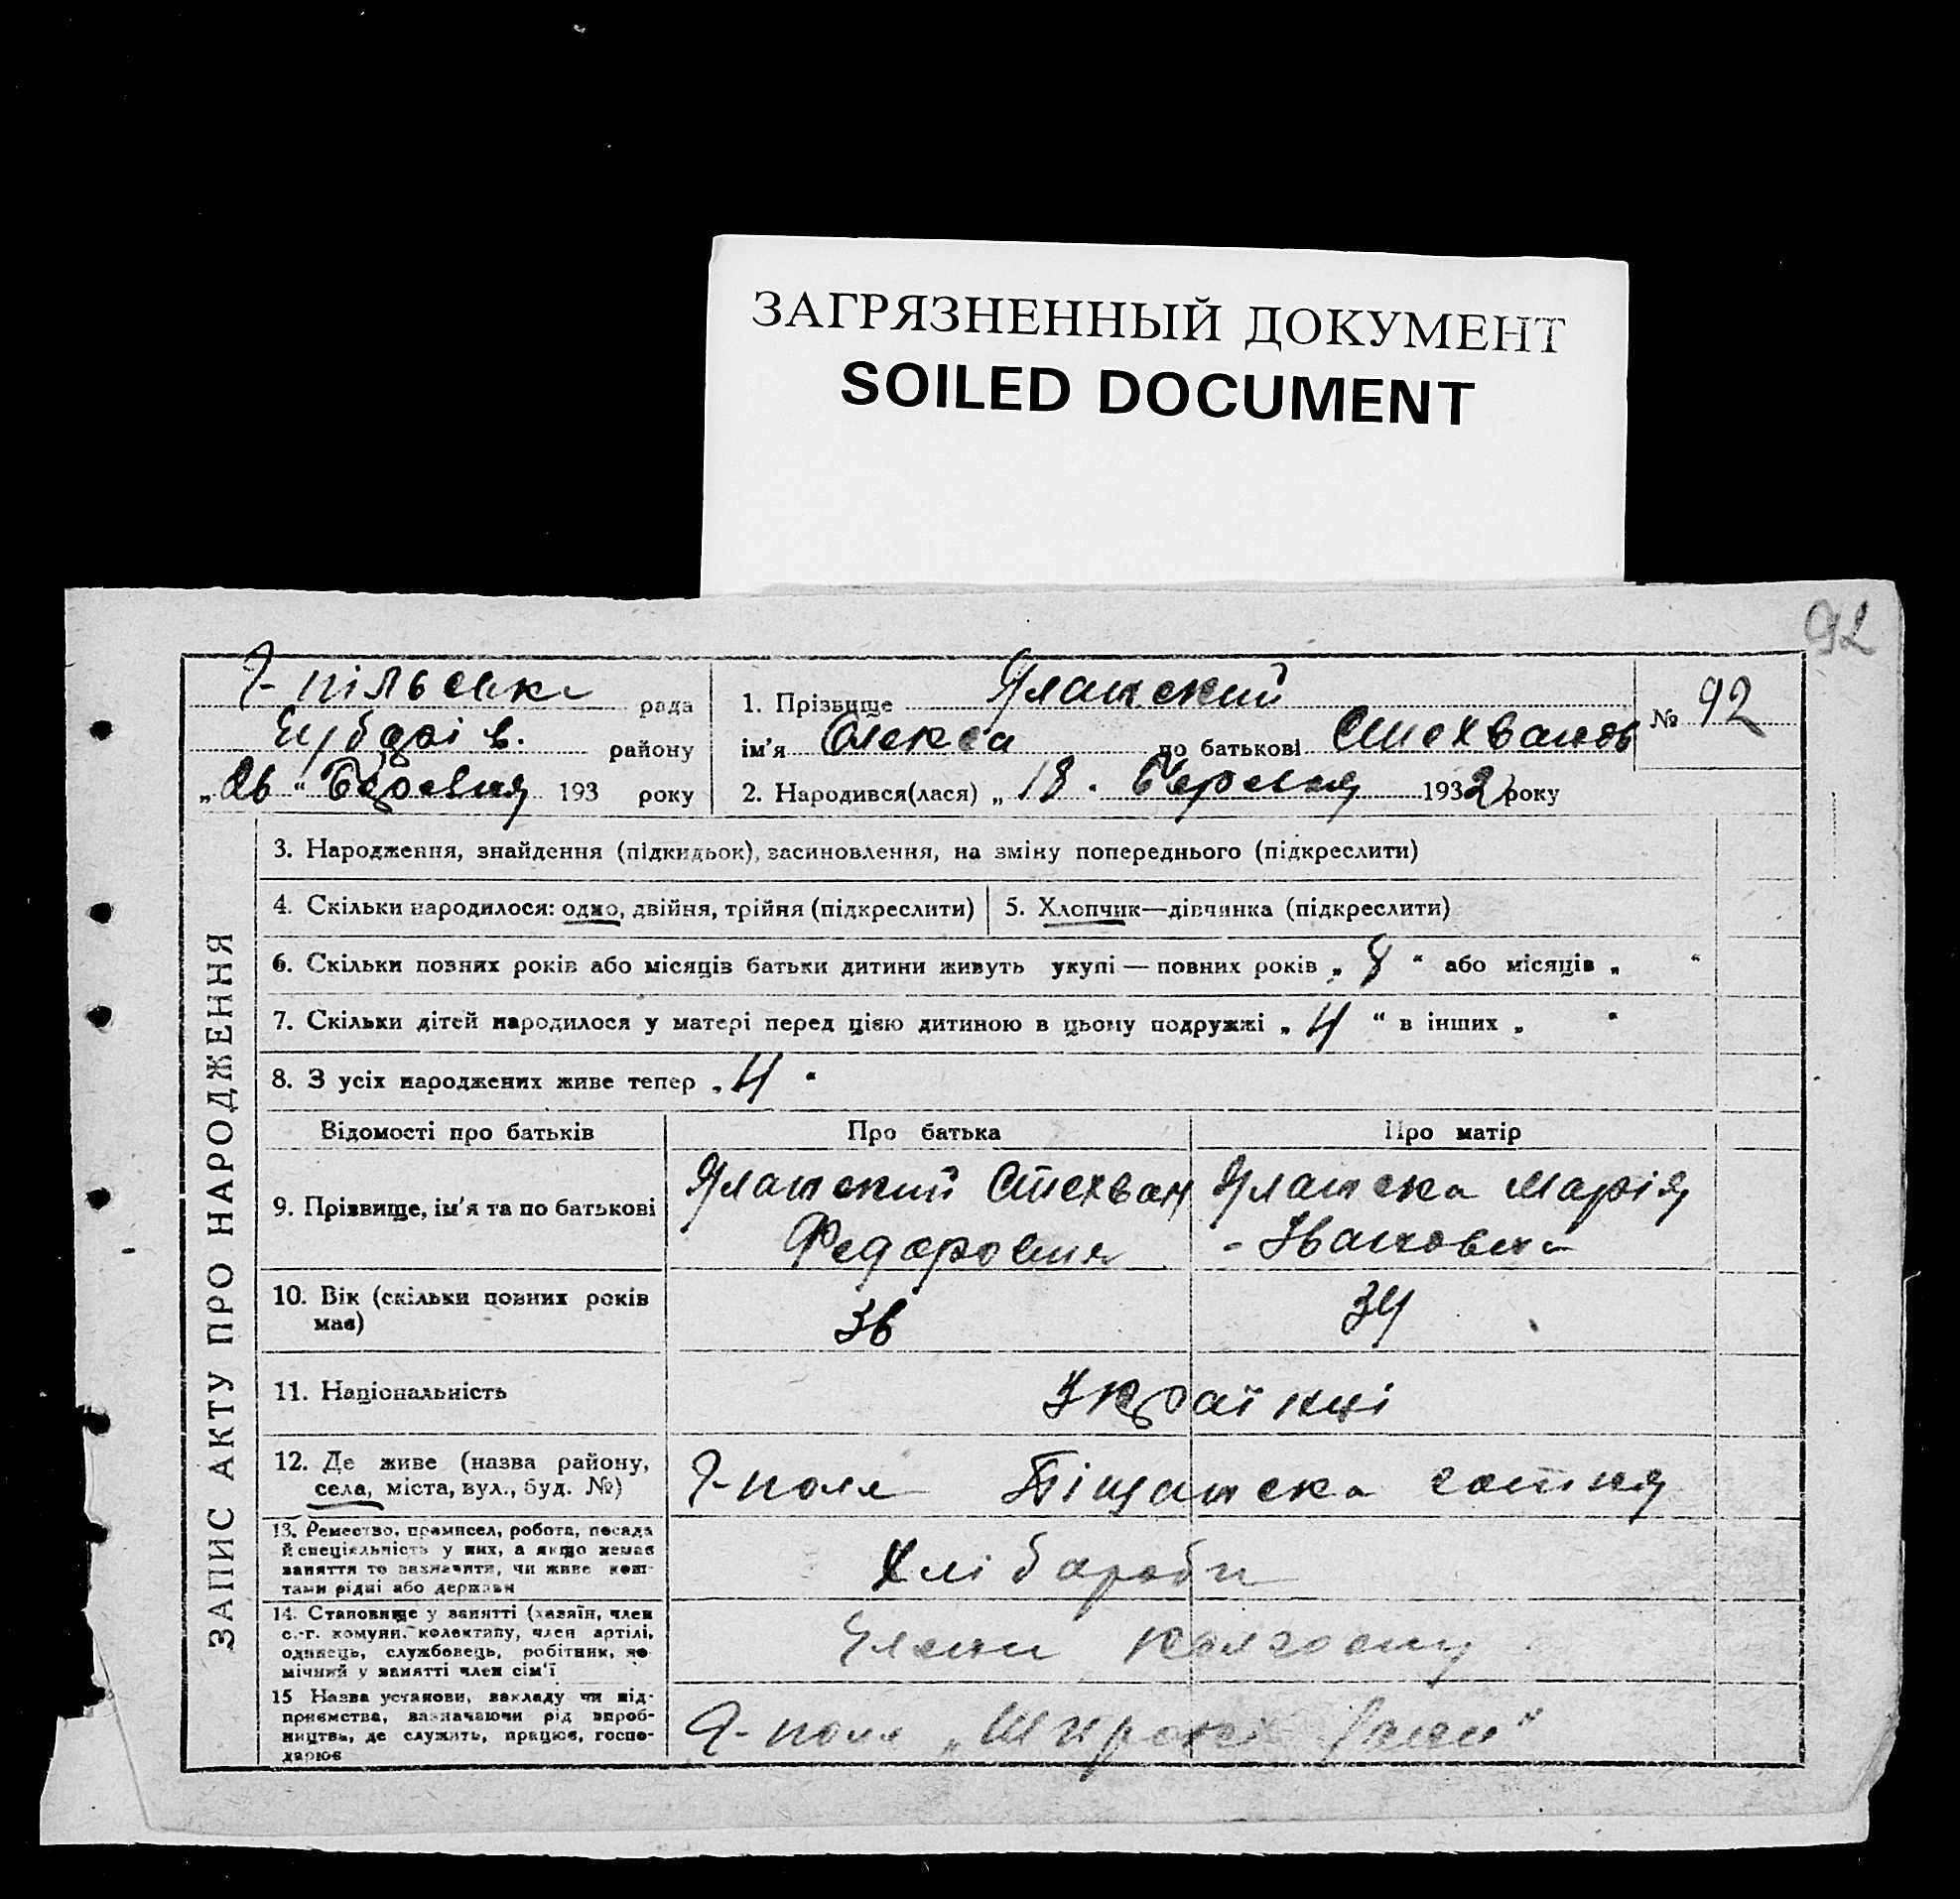 ЗАГРЯЗНЕННЫЙ ДОКУМЕНТ
SOILED DOCUMENT
92
рада
району
„26“ Березня 193 року
1. Прізвище
ім'я Олекса по батькові Стехванов
№ 92
2. Народився(лася) „18. Березня 1932 року
ЗАПИС АКТУ ПРО НАРОДЖЕННЯ
3. Народження, знайдення (підкидьок), засиновлення, на зміну попереднього (підкреслити)
4. Скільки народилося: одно, двійня, трійня (підкреслити)
5. Хлопчик—дівчинка (підкреслити)
6. Скільки повних років або місяців батьки дитини живуть укупі — повних років „ 8 “ або місяців „ “
7. Скільки дітей народилося у матері перед цією дитиною в цьому подружжі „ 4 “ в інших „ “
8. З усіх народжених живе тепер „ 4 “
Відомості про батьків
Про батька
Про матір
9. Прізвище, ім'я та по батькові
Стехван
Федорович
Марія
Івановна
10. Вік (скільки повних років
має)
36
34
11. Національність
Українці
12. Де живе (назва району,
села, міста, вул., буд. №)
Піщанска сотня
13. Ремество, промисел, робота, посада
й спеціяльність у них, а якщо немає
заняття то зазначити, чи живе кош-
тами рідні або держави
Хлібароби
14. Становище у занятті (хазяїн, член
с.-г. комуни, колективу, член артілі,
одинець, службовець, робітник, по-
мічний у занятті член сім'ї
Члени колгоспу
15 Назва установи, закладу чи під-
приємства, зазначаючи рід вироб-
ництва, де служить, працює, госпо-
дарює